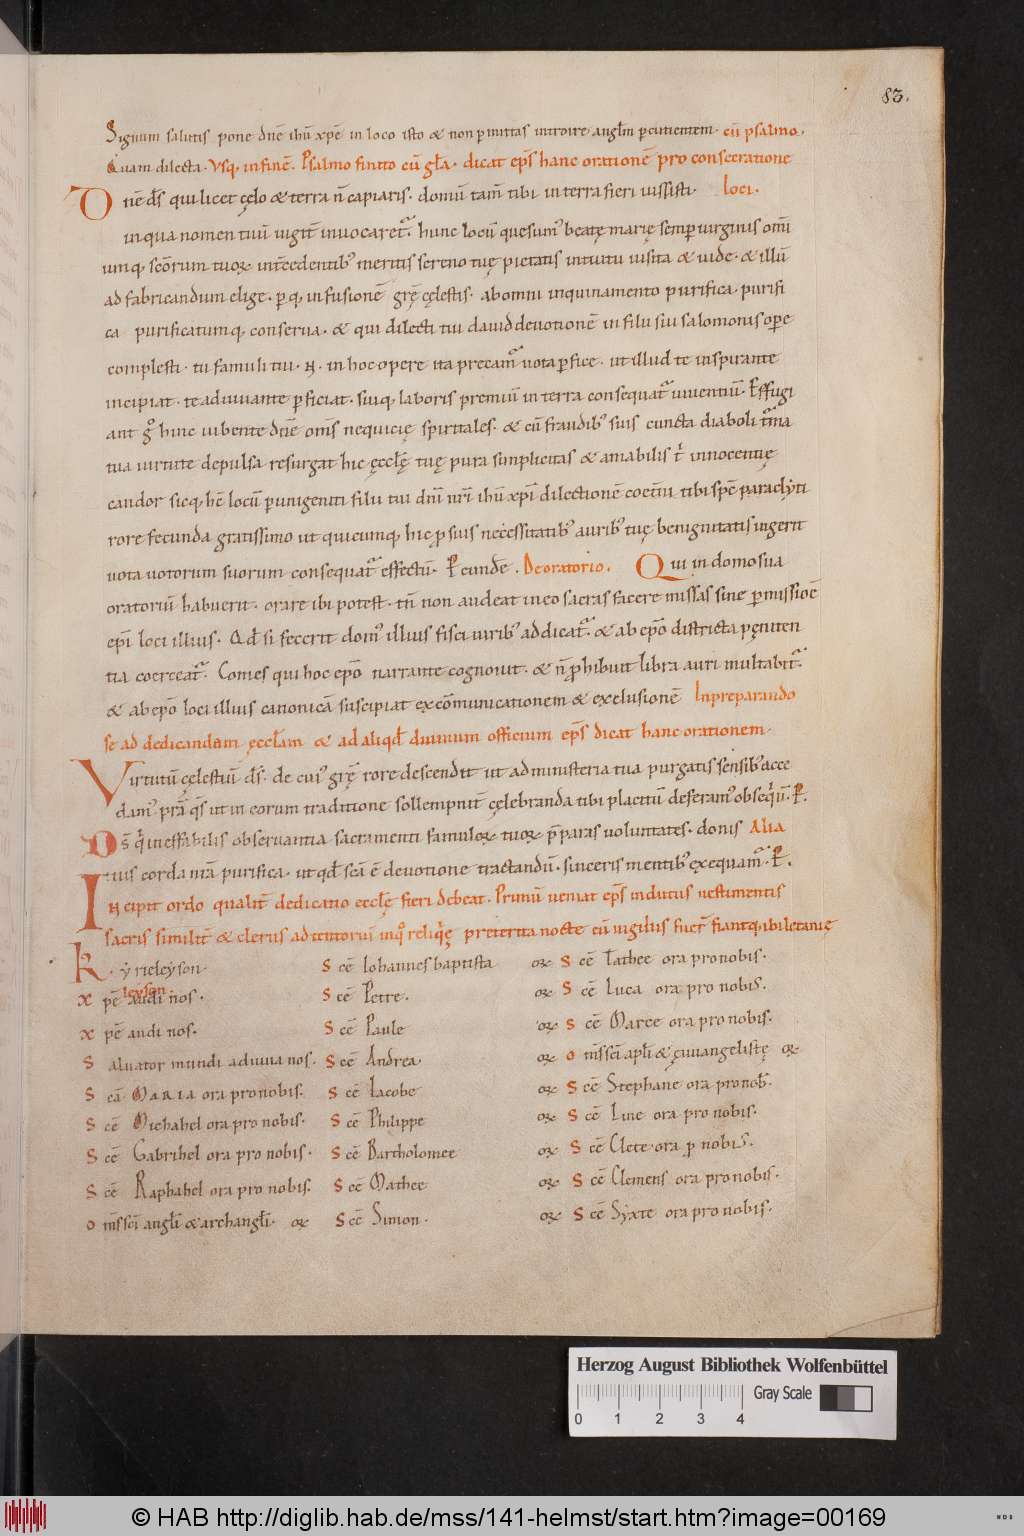 83.
Signum salutis pone dnē ihū xpē in loco isto & non p̄mittas introire anglm̄ p̄cutientem. cū psalmo.
Quam dilecta. Vsq, in finē. Psalmo finito cū gła. dicat ep̄s hanc orationē pro consecratione
loci.
Dn̄e dś qui licet cęlo & terra n̄ capiaris. domū tam̄ tibi in terra fieri uoluisti.
in qua nomen tuū iugit̄ inuocaret᷑. hunc locū quesum᷒ beatę marię semp uirginis omī
umq, sc̄orum tuoꝝ int̄cedentib᷒ meritis sereno tuę pietatis intuitu uisita & uide. & illū
ad fabricandum elige. p̱q, infusionē grę̄ cęlestis. ab omni inquinamento purifica. purifi
ca purificatumq, conserua. & qui dilecti tui dauid deuotionē in filii sui salomonis opere
complesti. tu famuli tui. N. in hoc opere ita precam᷑ uota p̱fice. ut illud te inspirante
incipiat. te adiuuante p̱ficiat. suiq, laboris premiū in terra consequat᷑ uiuentiū. Effugi
ant g̊ hinc iubente dn̄e om̄s nequicię spiritales. & cū fraudib᷒ suis cuncta diaboli
tua uirtute depulsa resurgat hic ęcclę̄ tuę pura simplicitas & amabilis innocentię
candor sicq, hc̄ locū p̱ unigeniti filii tui dn̄i nr̄i ihū xpī dilectionē coet̄ni tibi sp̄c paraclyti
rore fecunda gratissimo ut quicumq, hic p̱ suis necessitatib᷒ aurib᷒ tuę benignitatis ingerit
uota uotorum suorum consequat᷑ effectū. P̱ eunde. De oratorio. Qui in domo sua
oratoriū habuerit. orare ibi potest. tn̄ non audeat in eo sacras facere missas sine p̱missioē
ep̄i loci illius. Qđ si fecerit dom᷒ illius fisci uirib᷒ addicat᷑. & ab ep̄o districta pęniten
tia coerceat᷑. Comes qui hoc ep̄o narrante cognouit. & n̄ p̱hibuit libra auri multabit᷑.
& ab ep̄o loci illius canonicā suscipiat excōmunicationem & exclusionē In preparando
se ad dedicandam ęccłam & ad aliqđ diuinum officium ep̄s dicat hanc orationem.
Virtutū cęlestiū dś. de cui᷒ grę̄ rore descendit ut ad ministeria tua purgatis sensib᷒ acce
dam᷒. prā qś ut in eorum traditione sollempnit̄ cęlebranda tibi placitū deferam᷒ obseq̄ū. P̱.
Dś q̄ ineffabilis obseruantia sacramenti famuloꝝ tuoꝝ p̄paras uoluntates. donis Alia
tuis corda nrā purifica. ut qđ scā ē deuotione tractandū. sinceris mentib᷒ exequam᷑. P̱.
Incipit ordo qualit̄ dedicatio ecclę̄ fieri debeat. Primū ueniat ep̄s indutus uestimentis
sacris similit̄ & clerus ad tentoriū in q̊ reliq̄ę preterita nocte cū uigiliis fuer̄ fiantq, ibi letanię
Kyrieleyson S cē Iohannes baptista oꝝ S cē Tathee ora pro nobis.
leyson
xpē audi nos. S cē Petre. oꝝ S cē Luca ora pro nobis.
xpē audi nos. S cē Paule oꝝ S cē Marce ora pro nobis.
Saluator mundi adiuua nos. S cē Andrea. oꝝ om̄s sc̄i apłi & ęuuangelistę oꝝ
S cā MARIA ora pro nobis. S cē Iacobe oꝝ S cē Stephane ora pro nob̄.
S cē Michahel ora pro nobis. S cē Philippe oꝝ S cē Line ora pro nobis.
S cē Gabrihel ora pro nobis. S cē Bartholomee oꝝ S cē Clete ora p̱ nobis.
S cē Raphahel ora pro nobis. S cē Mathee oꝝ S cē Clemens ora pro nobis.
om̄s sc̄i angłi & archangłi. oꝝ S cē Simon. oꝝ S cē Syxte ora pro nobis.
Herzog August Bibliothek Wolfenbüttel
Gray Scale
0 1 2 3 4
© HAB http://diglib.hab.de/mss/141-helmst/start.htm?image=00169